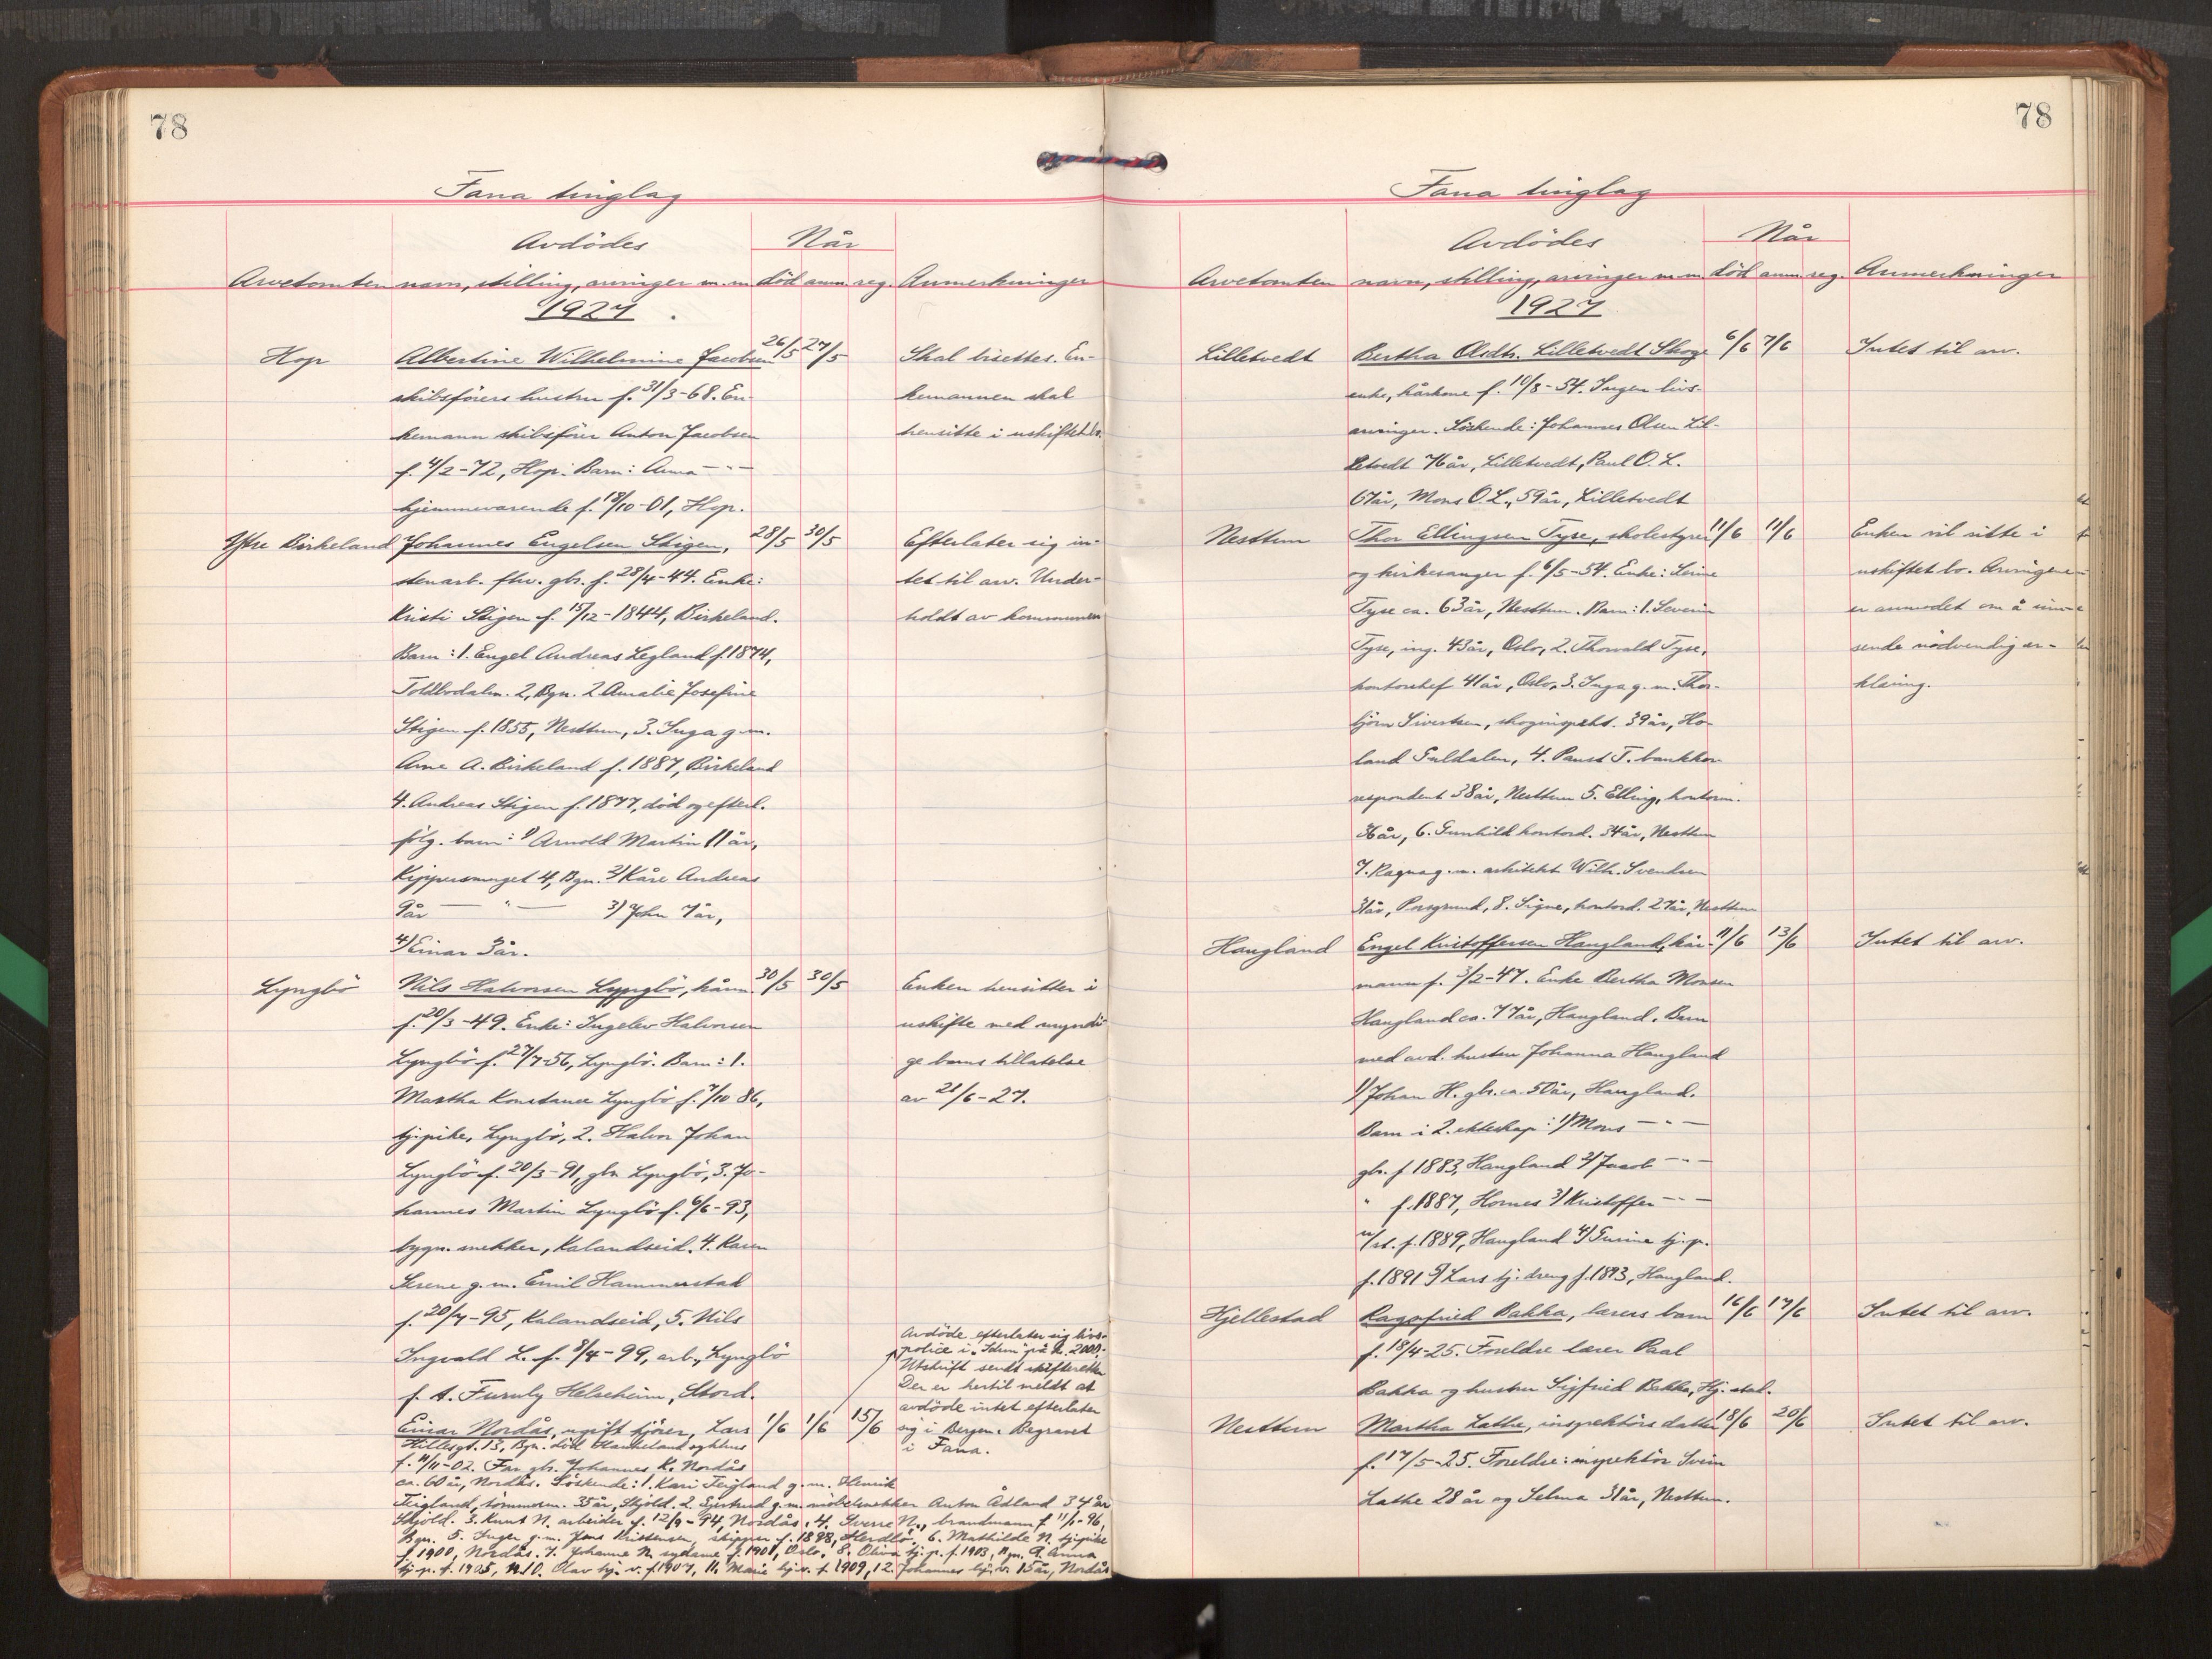 78
Fana tinglag
Avdödes
Når
Arvetomten navn, stilling, arvinger m. m. död anm. reg. Anmerkninger
1927.
Hop Albertine Wilhelmine Jacobsen 26/5 27/5 Skal bisettes. En-
skibsförers hustru f. 31/3-68. En- kemannen skal
kemann skibsförer Anton Jacobsen hensitte i uskiftet bo.
f. 4/2-72, Hop. Barn: Anna — " —
hjemmeværende f. /10-01, Hop.
Ytre Birkeland Johannes Engelsen Stigen, 28/5 30/5 Efterlater sig in-
stenarb. fhv. gbr. f. 28/4-44. Enke: tet til arv. Under-
Kristi Stigen f. 15/12-1844, Birkeland. holdt av kommunen
Barn: 1. Engel Andreas Legland f. 1874,
Toldbodalm. 2, Bgn. 2 Amalie Josefine
Stigen f. 1855, Nesttun, 3. Inga g. m.
Arne A. Birkeland f. 1887, Birkeland
4. Andreas Stigen f. 1877, död og efterl.
fölg. barn: 1) Arnold Martin 11 år,
Kippersmuget 4, Bgn. 2) Kåre Andreas
9 år — " — 3) John 7 år,
4) Einar 3 år.
Lyngbö Nils Halvorsen Lyngbö, kårm. 30/5 30/5 Enken hensitter i
f. 20/3-49. Enke: Ingelev Halvorsen uskifte med myndi-
Lyngbö f. 27/7-56, Lyngbö. Barn: 1. ge barns tillatelse
Martha Konstance Lyngbö f. 7/10 86, av 21/6-27.
tj.pike, Lyngbö, 2. Halvor Johan
Lyngbö f. 20/3-91, gbr. Lyngbö, 3. Jo-
hannes Martin Lyngbö f. 6/6-93,
bygn. snekker, Kalandseid. 4. Karen
Serene g. m. Emil Hammerstad
f. 20/7-95, Kalandseid, 5. Nils
Ingvald L. f. 8/4-99, arb., Lyngbö
f. t. Furuly Helseheim, Stord.
Avdöde efterlater sig livs-
police i "Idun" på kr. 2000,-
Utskrift sendt skifteretten
Der er hertil meldt at
avdöde intet efterlater
sig i Bergen. Begravet
i Fana.
Einar Nordås, ugift kjörer, Lars 1/6 1/6 15/6
Hillesgt. 13, Bgn. död Haukeland sykhus
f. 4/11-02. Far gbr. Johannes K. Nordås
ca. 60 år, Nordås. Söskende: 1. Kari Feigland g. m. Henrik
Feigland, tömmerm. 35 år, Skjold. 2. Sjertrud g. m. möbelsnekker Anton Ådland 34 år
Skjold. 3. Knut N. arbeider f. 12/9-94, Nordås. 4. Sverre N., brandmann f. 11/1-96,
Bgn. 5. Inger g. m. Jens Kristensen, skipper f. 1898, Herdlö. 6. Mathilde N. tj.pike
f. 1900, Nordås. 7. Johanne N. sydame f. 1901, Oslo. 8. Oliva tj. p. f. 1903, Bgn. 9. Anna
tj. p. f. 1905, N. 10. Olav hj. v. f. 1907, 11. Marie hj. v. f. 1909, 12. Johannes hj. v. 15 år, Nordås
78
Fana tinglag
Avdödes
Når
Arvetomten navn, stilling, arvinger m. m. död anm. reg. Anmerkninger
1927
Lilletvedt Bertha Olsdtr. Lilletvedt Skoge 6/6 7/6 Intet til arv.
enke, kårkone f. 10/8-54. Ingen livs-
arvinger. Söskende: Johannes Olsen Lil-
letvedt 76 år, Lilletvedt, Paul O. L.
67 år, Mons O. L., 59 år, Lilletvedt
Nesttun Thor Ellingsen Tyse, skolestyrer 11/6 11/6 Enken vil sitte i
og kirkesanger f. 6/5-54. Enke: Serine uskiftet bo. Arvingene
Tyse ca. 63 år, Nesttun. Barn: 1. Severin er anmodet om å inn-
Tyse, ing. 43 år, Oslo, 2. Thorvald Tyse, sende nödvendig er-
kontorchef 41 år, Oslo, 3. Inga g. m. Thor- klæring.
björn Sivertsen, skoginspekt. 39 år, Ho-
land Guldalen, 4. Paust T. bankkor-
respondent 38 år, Nesttun 5. Elling, kontorm.
36 år, 6. Gunhild kontord. 34 år, Nesttun
7. Ragna g. m. arkitekt Wilh. Svendsen
31 år, Porsgrund, 8. Signe, kontord. 27 år, Nesttun
Haugland Engel Kristoffersen Haugland, kår- 11/6 13/6 Intet til arv.
mann f. 3/2-47. Enke Bertha Monsen
Haugland ca. 77 år, Haugland. Barn
med avd. hustru Johanna Haugland
1) Johan H. gbr. ca. 50 år, Haugland.
Barn i 2. ekteskap: 1) Mons — " —
gbr. f 1883, Haugland 2) Jacob — " —
" f. 1887, Hornes 3) Kristoffer — " —
f. 1889, Haugland 4) Gurine tj. p.
f. 1891 5) Lars tj. dreng f. 1893, Haugland.
Hjellestad Ragnfried Bakka, lærers barn 16/6 17/6 Intet til arv.
f. 18/4-25. Foreldre lærer Paal
Bakka og hustru Sigfried Bakka, Hj. stad.
Nesttun Martha Lathe, inspektörs datter 18/6 20/6 Intet til arv.
f. 17/5-25. Foreldre: inspektör Svein
Lathe 28 år og Selma 31 år, Nesttun.